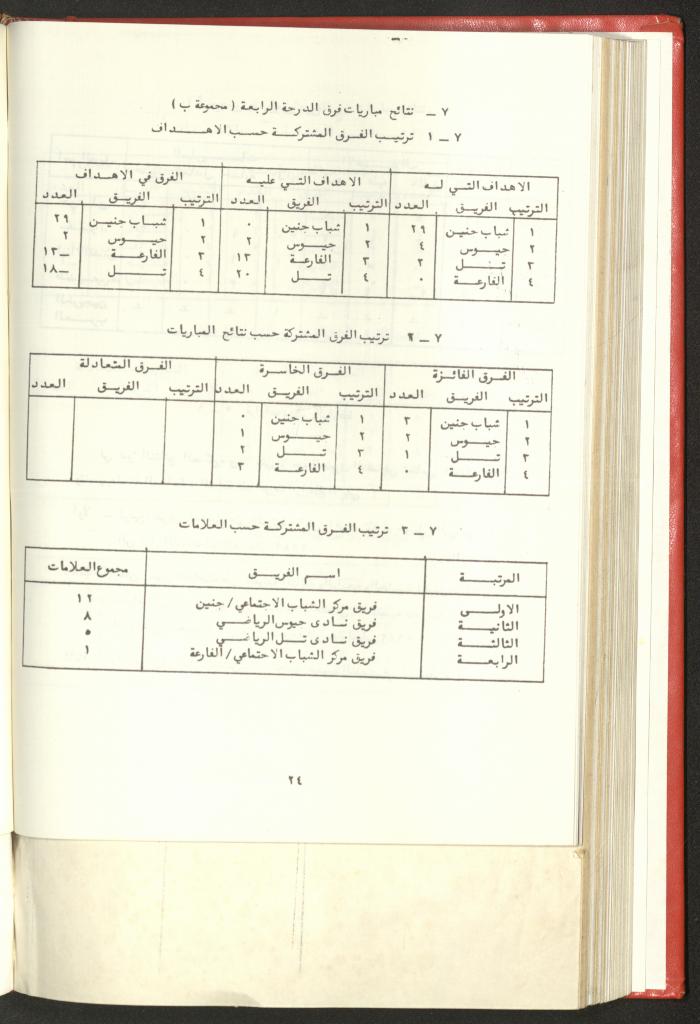 ٧ ــ نتائج مباريات فرق الدرجة الرابعة ( مجموعة ب )
٧ ــ ١ ترتيب الفرق المشتركة حسب الاهداف
الاهداف التي له الاهداف التي عليه الفرق في الاهداف
الترتيب الفريق العدد الترتيب الفريق العدد الترتيب الفريق العدد
١ شباب جنين ٢٩ ١ شباب جنين ٠ ١ شباب جنين ٢٩
٢ جيوس ٤ ٢ جيوس ٢ ٢ جيوس ٢
٣ تل ٢ ٣ الفارعة ١٣ ٣ الفارعة ــ١٣
٤ الفارعة ٠ ٤ تل ٢٠ ٤ تل ــ١٨
٧ ــ ٢ ترتيب الفرق المشتركة حسب نتائج المباريات
الفرق الفائزة الفرق الخاسرة الفرق المتعادلة
الترتيب الفريق العدد الترتيب الفريق العدد الترتيب الفريق العدد
١ شباب جنين ٣ ١ شباب جنين ٠
٢ جيوس ٢ ٢ جيوس ١
٣ تل ١ ٣ تل ٢
٤ الفارعة ٠ ٤ الفارعة ٣
٧ ــ ٣ ترتيب الفرق المشتركة حسب العلامات
المرتبة اسم الفريق مجموع العلامات
الاولى فريق مركز الشباب الاجتماعي/ جنين ١٢
الثانية فريق نادى جيوس الرياضي ٨
الثالثة فريق نادى تل الرياضي ٥
الرابعة فريق مركز الشباب الاجتماعي/ الفارعة ١
٢٤